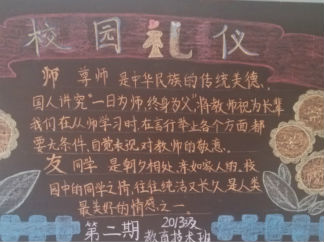 校园礼仪
师 尊师 是中华民族的传统美德。
国人讲究“一日为师,终身为父”,将教师视为长辈
我们在从师学习时,在言行举止各个方面,都
要无条件,自觉表现对教师的敬意。
友 同学 是朝夕相处,亲如家人的,校
园中的同学之情,往往纯洁又长久,是人类
最美好的情感之一
第二期 2013级
教育技术班